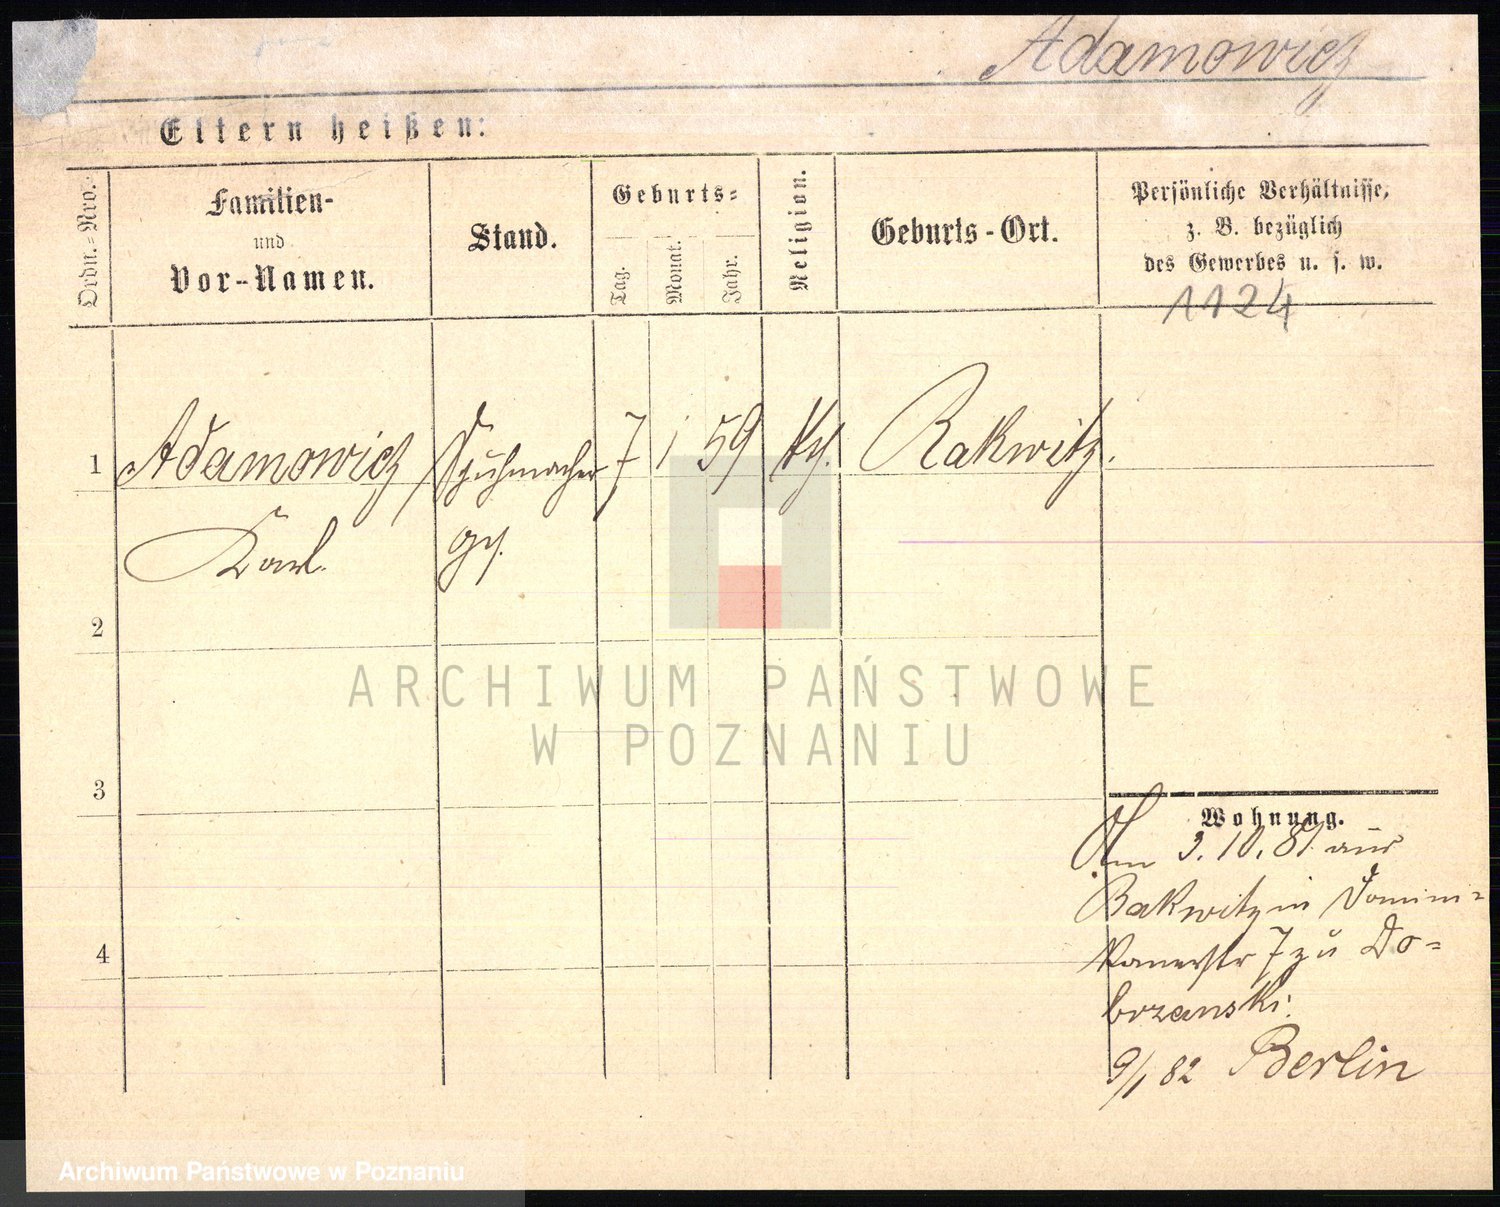 Adamowicz
Eltern heißen:
Ordn.-Nro.
Familien-
und
Vor-Namen.
Stand.
Geburts-
Tag.
Monat.
Jahr.
Religion.
Geburts-Ort.
Persönliche Verhältnisse,
z. B. bezüglich
des Gewerbes u. s. w.
1124
1 Adamowicz Schuhmacher 7 1 59 Rakwitz.
Karl
2
3
4
Wohnung.
Am 3.10.81 aus
Rakwitz in Domini-
kanerstr 7 zu Do-
brzanski.
9/1 82 Berlin
ARCHIWUM PAŃSTWOWE
W POZNANIU
Archiwum Państwowe w Poznaniu